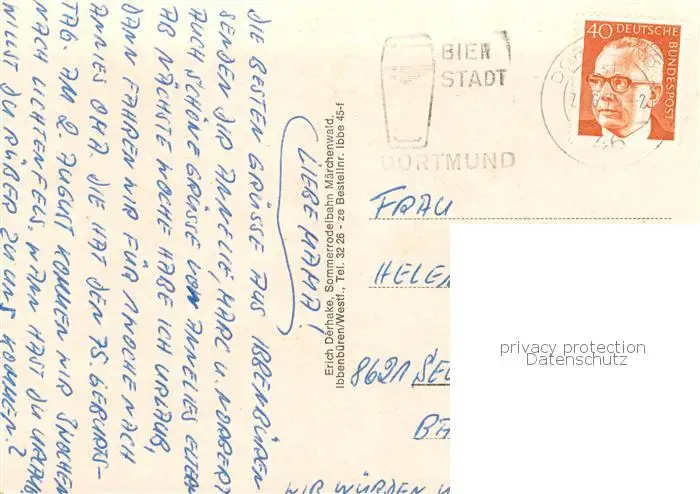 LIEBE MAMA!
DIE BESTEN GRÜSSE AUS IBBENBÜREN
SENDEN DIR ANNELIE, MARC U. NORBERT
AUCH SCHÖNE GRÜSSE VON ANNELIES ELTERN
AB NÄCHSTE WOCHE HABE ICH URLAUB,
DANN FAHREN WIR FÜR 1 WOCHE NACH
ANNIES OMA. DIE HAT DEN 75. GEBURTS-
TAG. AM 2. AUGUST KOMMEN WIR
NACH LICHTENFELS. WANN HAST DU URLAUB,
WILLST DU RÜBER ZU UNS KOMMEN?
WIR WÜRDEN
Erich Derhake, Sommerrodelbahn Märchenwald,
Ibbenbüren/Westf., Tel. 32 26 - ze Bestellnr. Ibbe 45-f
BIER
STADT
DORTMUND
40 DEUTSCHE
BUNDESPOST
46
FRAU
HELEN
8621
BA
privacy protection
Datenschutz